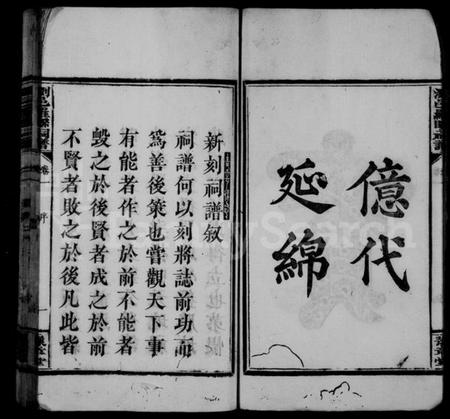 億代
延綿
新刻祠譜叙
祠譜何以刻將誌前功而
為善後策也嘗觀天下事
有能者作之於前不能者
毀之於後賢者成之於前
不賢者敗之於後凡此皆